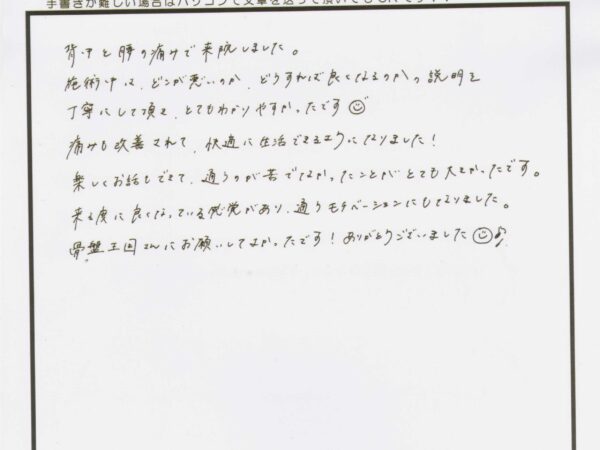 手書きが難しい場合はパソコンで文章を送って頂いてもOKです！！
背中と腰の痛みで来院しました。
施術中は、どこが悪いのか、どうすれば良くなるのかの説明を
丁寧にして頂き、とてもわかりやすかったです
痛みも改善されて、快適に生活できるようになりました！
楽しくお話もできて、通うのが苦でなかったことがとても大きかったです。
来る度に良くなっている感覚があり、通うモチベーションにもなりました。
骨盤王国さんにお願いしてよかったです！ありがとうございました